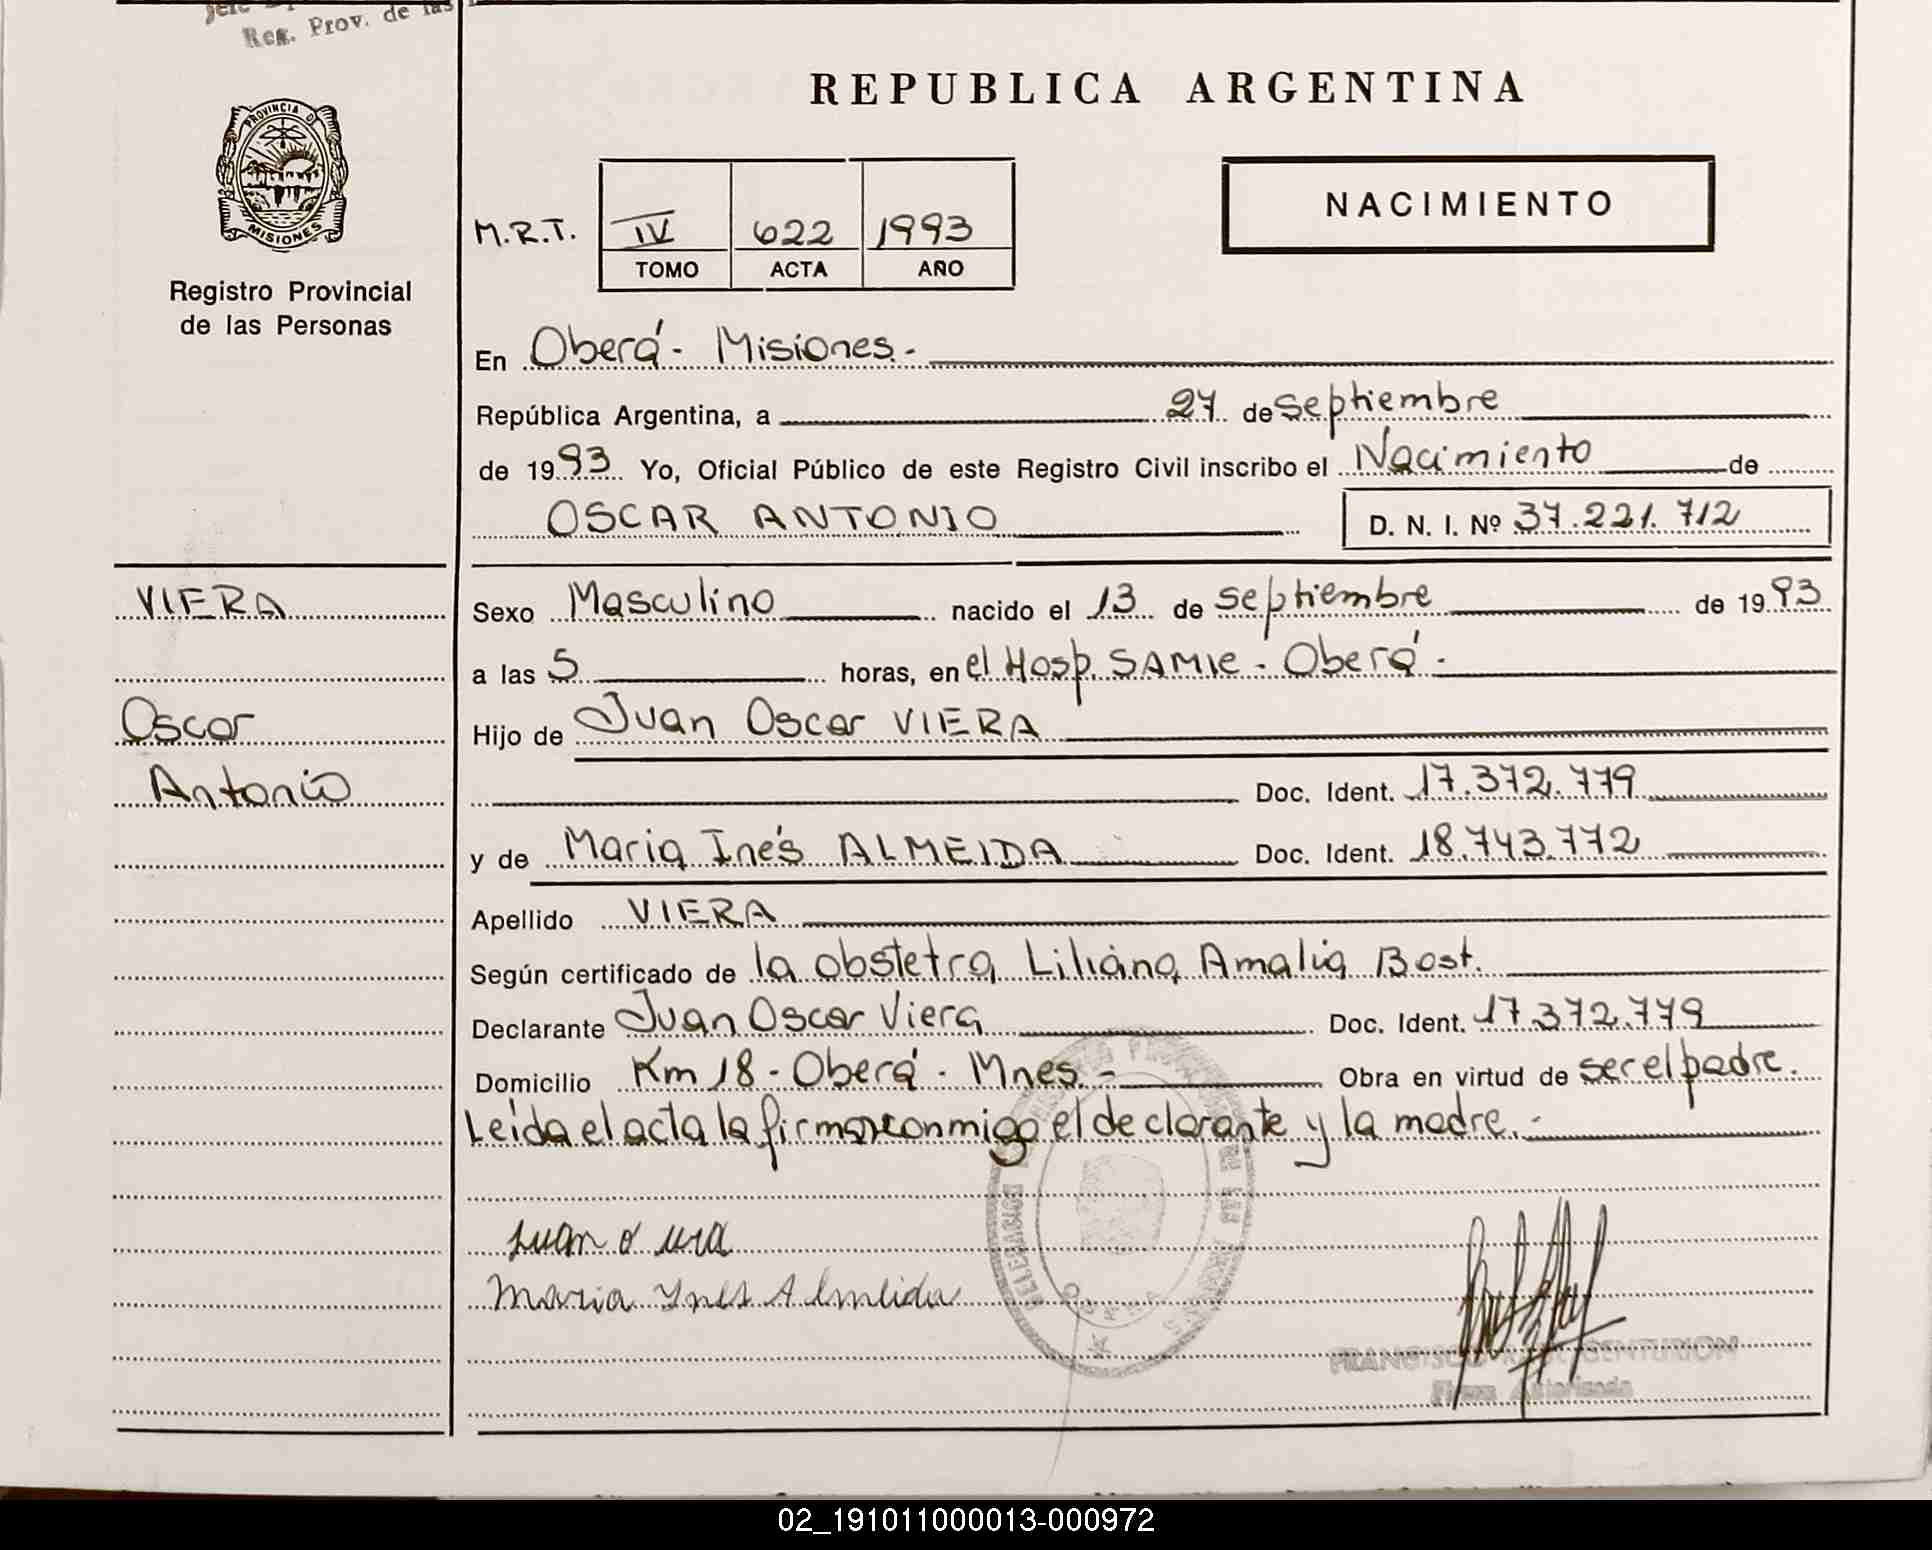 Reg. Prov. de las
REPUBLICA ARGENTINA
PROVINCIA D
MISIONES
Registro Provincial
de las Personas
NACIMIENTO
M.R.T. IV 622 1993
TOMO ACTA AÑO
En Oberá - Misiones.-
República Argentina, a 27 de septiembre
de 1993 Yo, Oficial Público de este Registro Civil inscribo el Nacimiento de
OSCAR ANTONIO D. N. I. Nº 37.221.712
VIERA
Sexo Masculino nacido el 13 de septiembre de 1993
a las 5 horas, en el Hosp. SAMIC - Oberá -
Oscar
Hijo de Juan Oscar VIERA
Antonio
Doc. Ident. 17.372.779
y de Maria Inés ALMEIDA Doc. Ident. 18.743.772
Apellido VIERA
Según certificado de la obstetra Liliana Amalia Bost.
Declarante Juan Oscar Viera Doc. Ident. 17.372.779
Domicilio Km 18 - Oberá - Mnes.- Obra en virtud de ser el padre.
Leída el acta la firman conmigo el declarante y la madre.-
Juan O
Maria Ynes Almeida
FRANCISCO CENTURION
Firma Autorizada
02_191011000013-000972